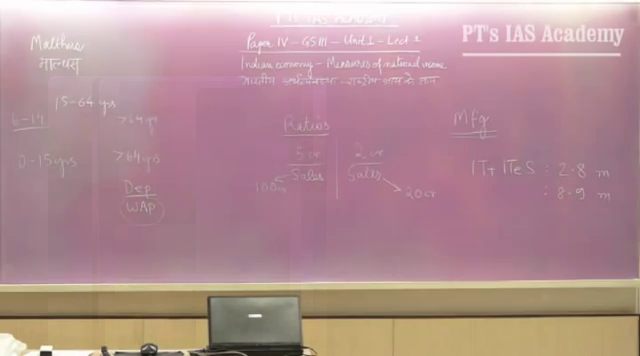 PT's IAS Academy
PT's IAS Academy
Paper IV - GS III - Unit 1 - Lect 1
Indian economy - Measures of national income
भारतीय अर्थव्यवस्था - राष्ट्रीय आय के माप
Malthus
माल्थस
15-64 yrs
6-14
>64 yrs
0-15 yrs
>64 yrs
Dep
WAP
Ratios
5 cr
Sales
100 cr
2 cr
Sales
20 cr
Mfg
IT + ITeS : 2.8 m
: 8.9 m